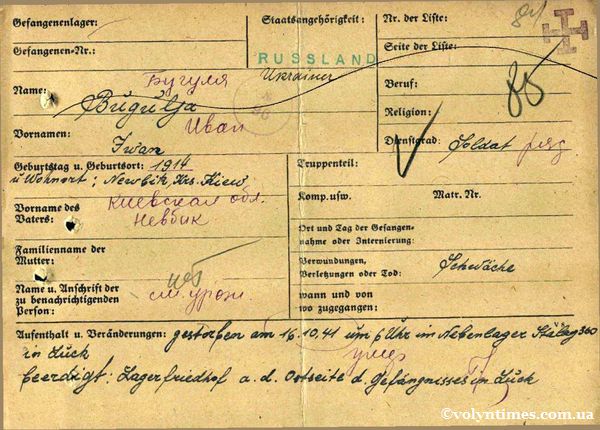 Gefangenenlager:
Gefangenen-Nr.:
Name: Бугуля
Bugulja
Vornamen: Иван
Iwan
Geburtstag u. Geburtsort: 1914
u Wohnort; Newbik Krs. Kiew
Vorname des Vaters: Киевская обл.
Невбик
Familienname der
Mutter:
Name u. Anschrift der
zu benachrichtigenden
Person:
см. угот.
Staatsangehörigkeit:
RUSSLAND
Ukrainer
Nr. der Liste: 84
Seite der Liste:
Beruf: 85
Religion:
Dienstgrad: Soldat ряд
Truppenteil:
Komp. usw. Matr. Nr.
Ort und Tag der Gefangen-
nahme oder Internierung:
Verwundungen,
Verletzungen oder Tod: Schwäche
wann und von
wo zugegangen:
Aufenthalt u. Veränderungen: gestorfen am 16.10.41 um 6 Uhr im Nebenlager Stalag 360
in Luck умер
beerdigt: Lagerfriedhof a. d. Ostseite d. Gefängnisses in Luck
©volyntimes.com.ua